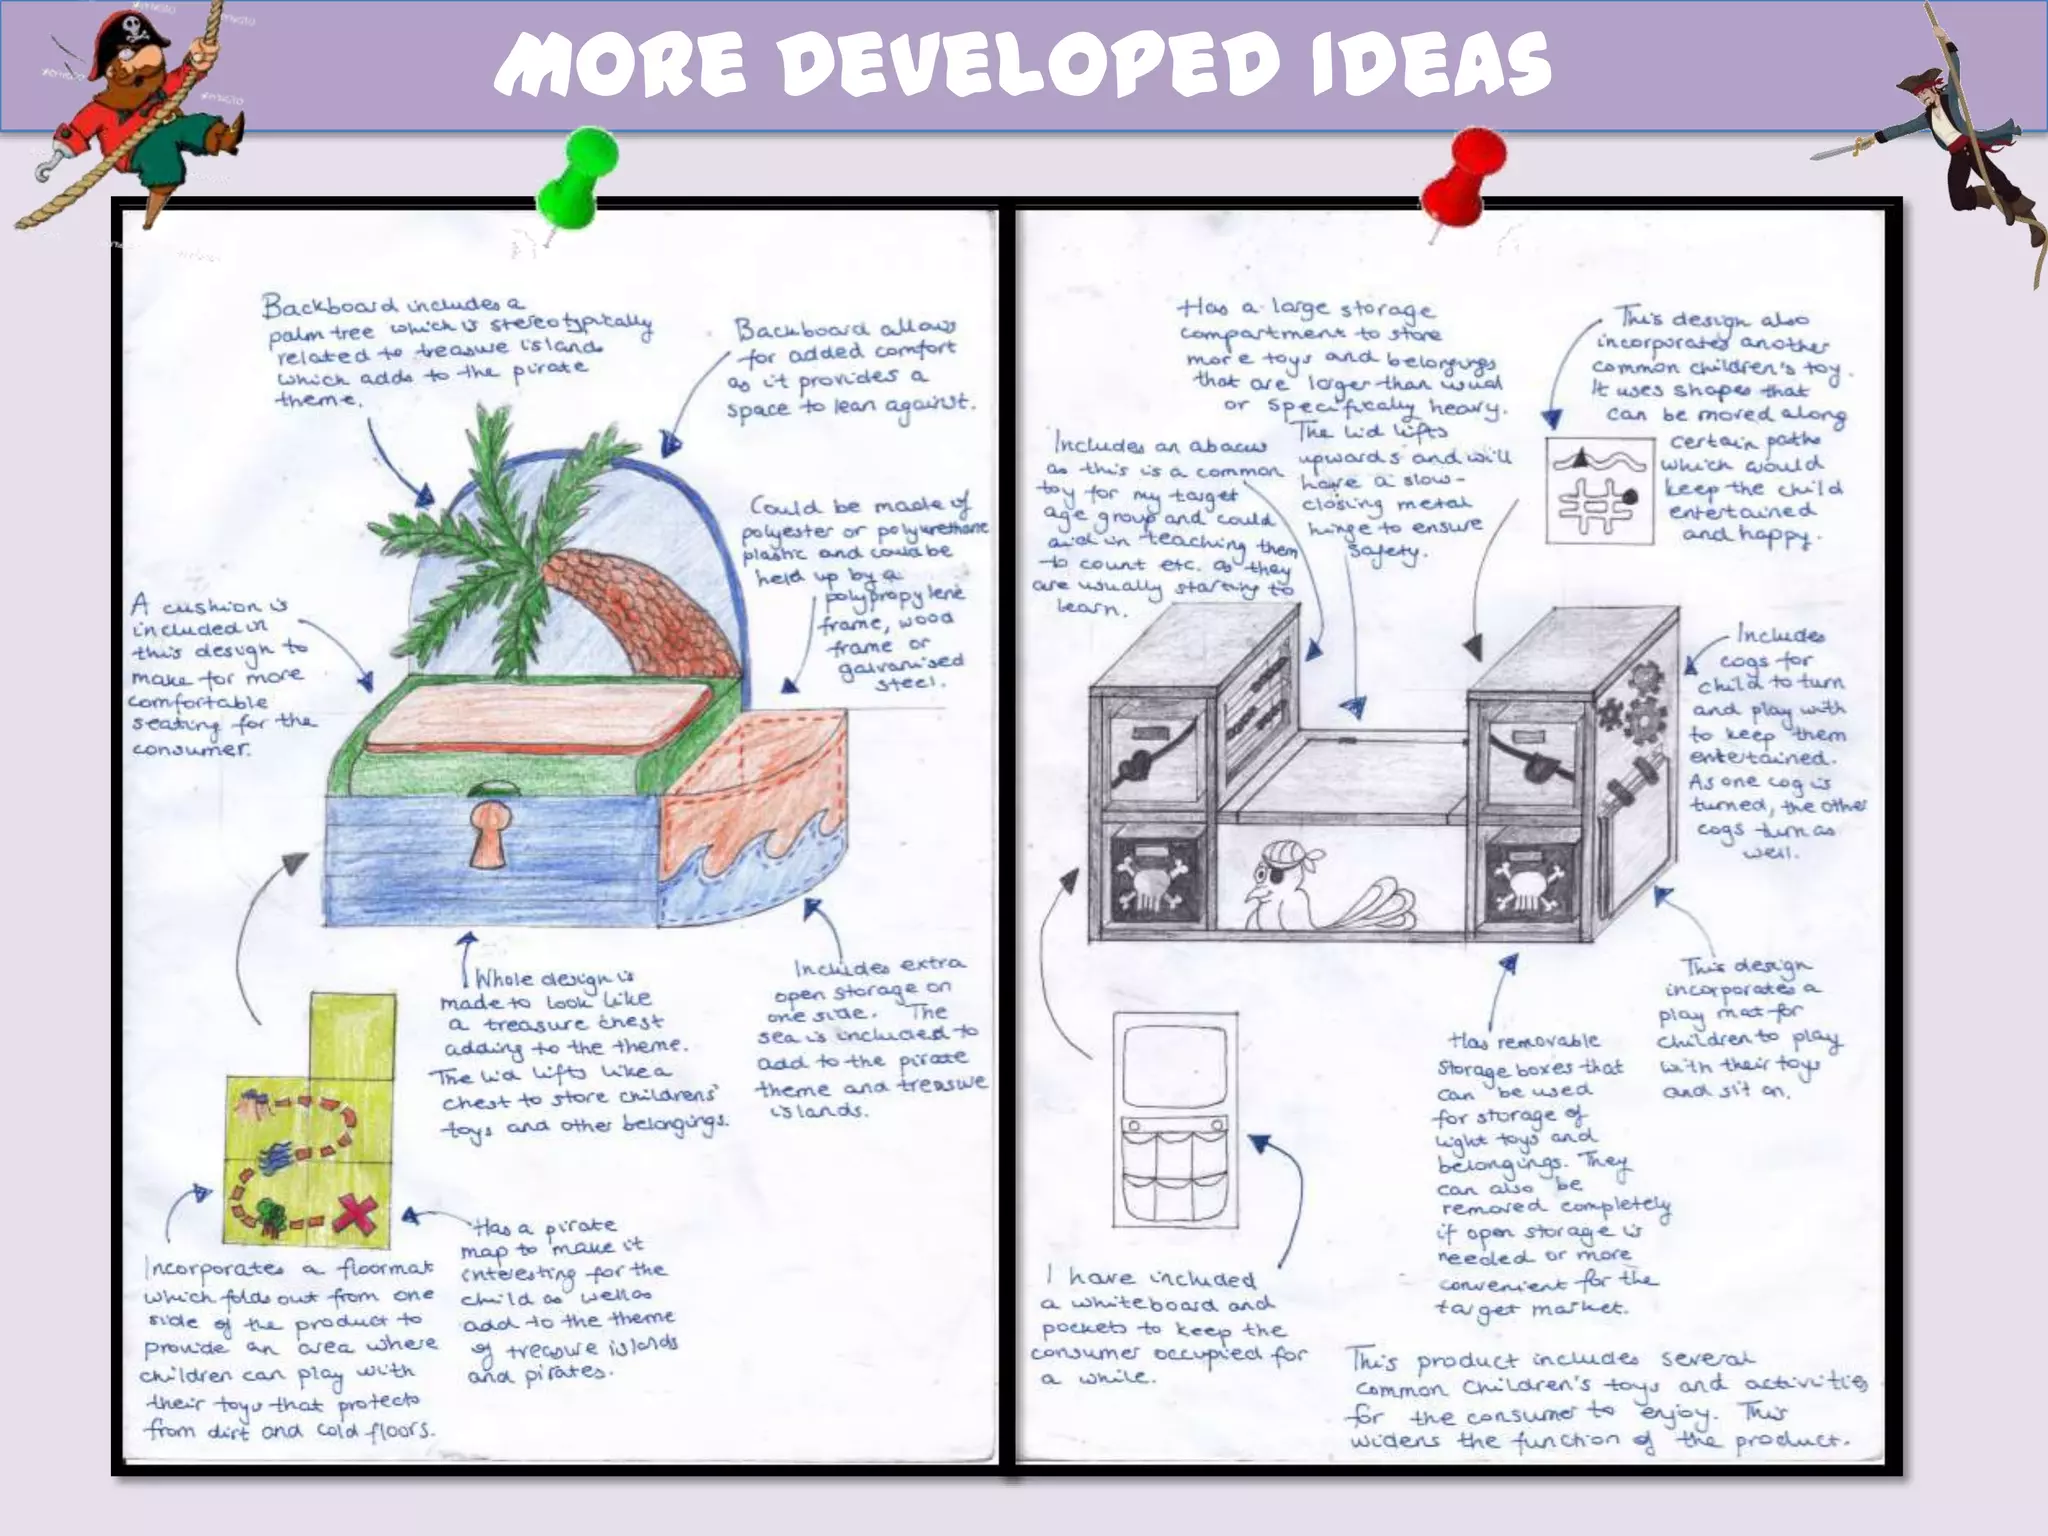 MORE DEVELOPED IDEAS
Backboard includes a
palm tree which is stereotypically
related to treasure islands
which adds to the pirate
theme.
Backboard allows
for added comfort
as it provides a
space to lean against.
Could be made of
polyester or polyurethane
plastic and could be
held up by a
polypropylene
frame, wood
frame or
galvanised
steel.
A cushion is
included in
this design to
make for more
comfortable
seating for the
consumer.
Whole design is
made to look like
a treasure chest
adding to the theme.
The lid lifts like a
chest to store childrens'
toys and other belongings.
Includes extra
open storage on
one side. The
sea is included to
add to the pirate
theme and treasure
islands.
Incorporates a floormat
which folds out from one
side of the product to
provide an area where
children can play with
their toys that protects
from dirt and cold floors.
Has a pirate
map to make it
interesting for the
child as well as
add to the theme
of treasure islands
and pirates.
Has a large storage
compartment to store
more toys and belongings
that are larger than usual
or specifically heavy.
The lid lifts
upwards and will
have a slow-
closing metal
hinge to ensure
safety.
This design also
incorporates another
common children's toy.
It uses shapes that
can be moved along
certain paths
which would
keep the child
entertained
and happy.
Includes an abacus
as this is a common
toy for my target
age group and could
aid in teaching them
to count etc. as they
are usually starting to
learn.
Includes
cogs for
child to turn
and play with
to keep them
entertained.
As one cog is
turned, the other
cogs turn as
well.
This design
incorporates a
play mat for
children to play
with their toys
and sit on.
Has removable
storage boxes that
can be used
for storage of
light toys and
belongings. They
can also be
removed completely
if open storage is
needed or more
convenient for the
target market.
I have included
a whiteboard and
pockets to keep the
consumer occupied for
a while.
This product includes several
common children's toys and activities
for the consumer to enjoy. This
widens the function of the product.